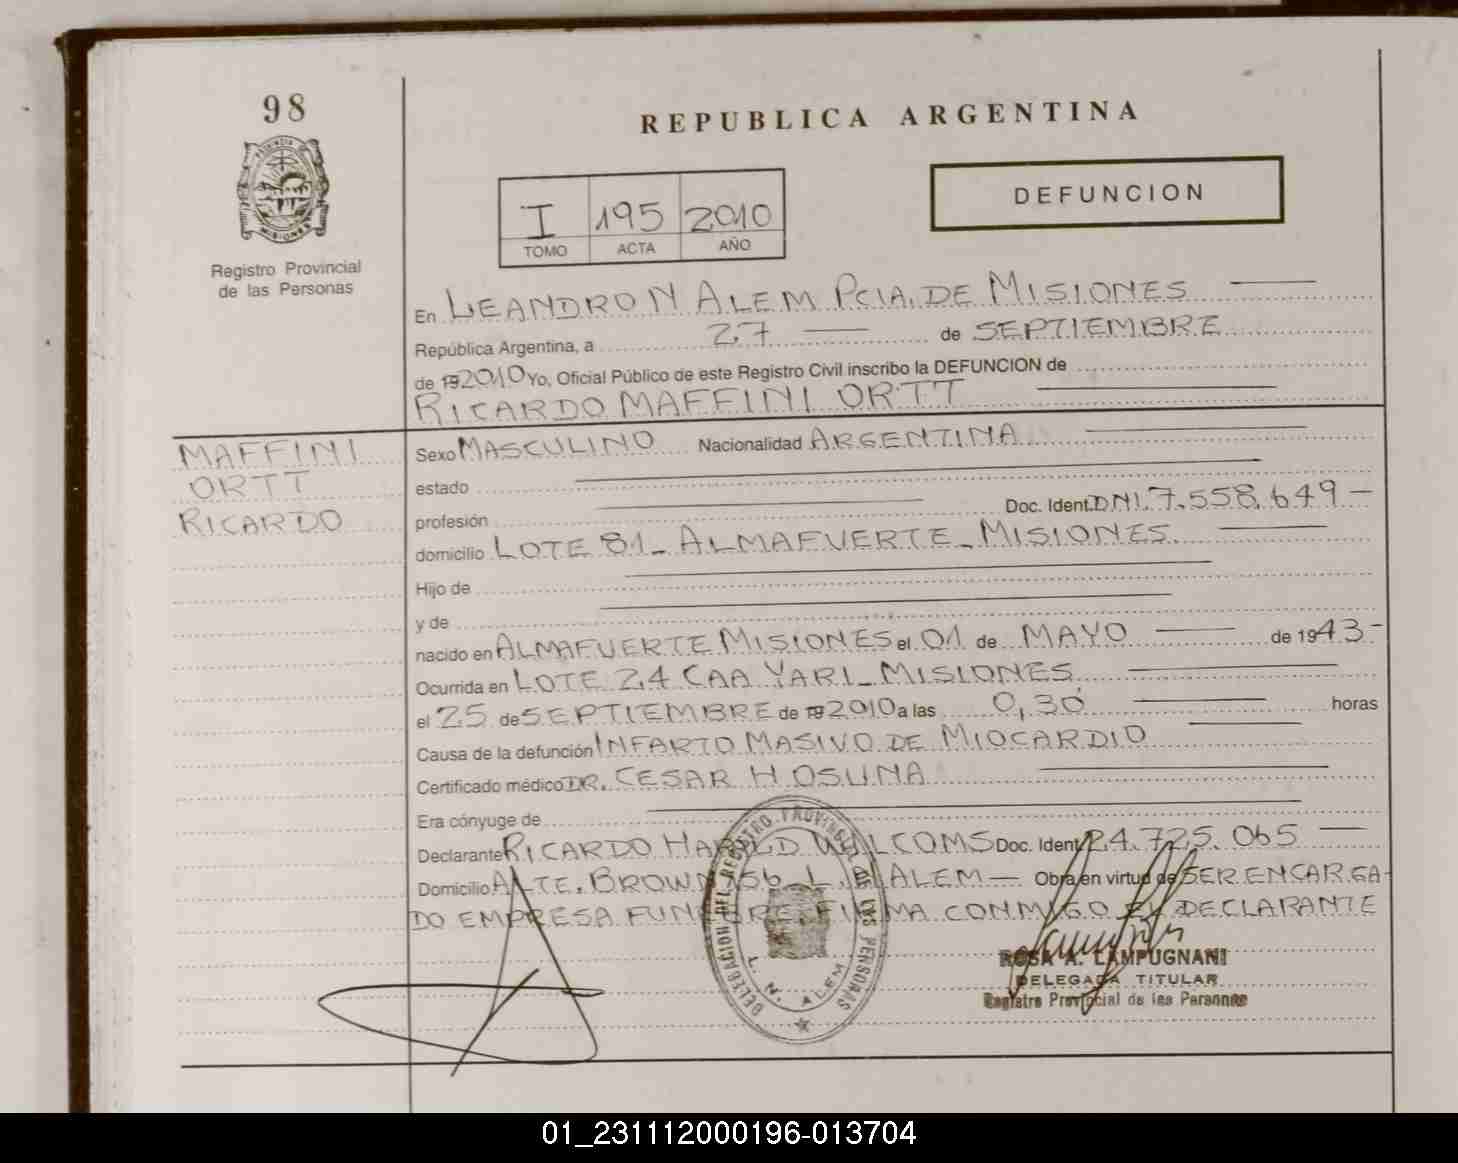 98
REPUBLICA ARGENTINA
I 195 2010
TOMO ACTA AÑO
DEFUNCION
PROVINCIA DE
MISIONES
Registro Provincial
de las Personas
En LEANDRO N ALEM PCIA. DE MISIONES
República Argentina, a 27 de SEPTIEMBRE
de 192010 Yo, Oficial Público de este Registro Civil inscribo la DEFUNCION de
RICARDO MAFFINI ORTT
MAFFINI
ORTT
RICARDO
Sexo MASCULINO Nacionalidad ARGENTINA
estado
profesión Doc. Ident. DNI. 7.558.649 -
domicilio LOTE 81 - ALMAFUERTE - MISIONES.
Hijo de
y de
nacido en ALMAFUERTE MISIONES el 01 de MAYO de 1943 -
Ocurrida en LOTE 24 CAA YARI - MISIONES
el 25 de SEPTIEMBRE de 192010 a las 0,30 horas
Causa de la defunción INFARTO MASIVO DE MIOCARDIO
Certificado médico DR. CESAR H OSUNA
Era cónyuge de
Declarante RICARDO HAROLD Doc. Ident. 24.725.065
Domicilio ALTE. BROWN L. N. ALEM — Obra en virtud de SER ENCARGA-
DO EMPRESA FUNEBRE. FIRMA CONMIGO EL DECLARANTE
DELEGACION DEL REGISTRO PROVINCIAL DE LAS PERSONAS
L. N. ALEM
ROSA A. LAMPUGNANI
DELEGADA TITULAR
Registro Provincial de las Personas
01_231112000196-013704